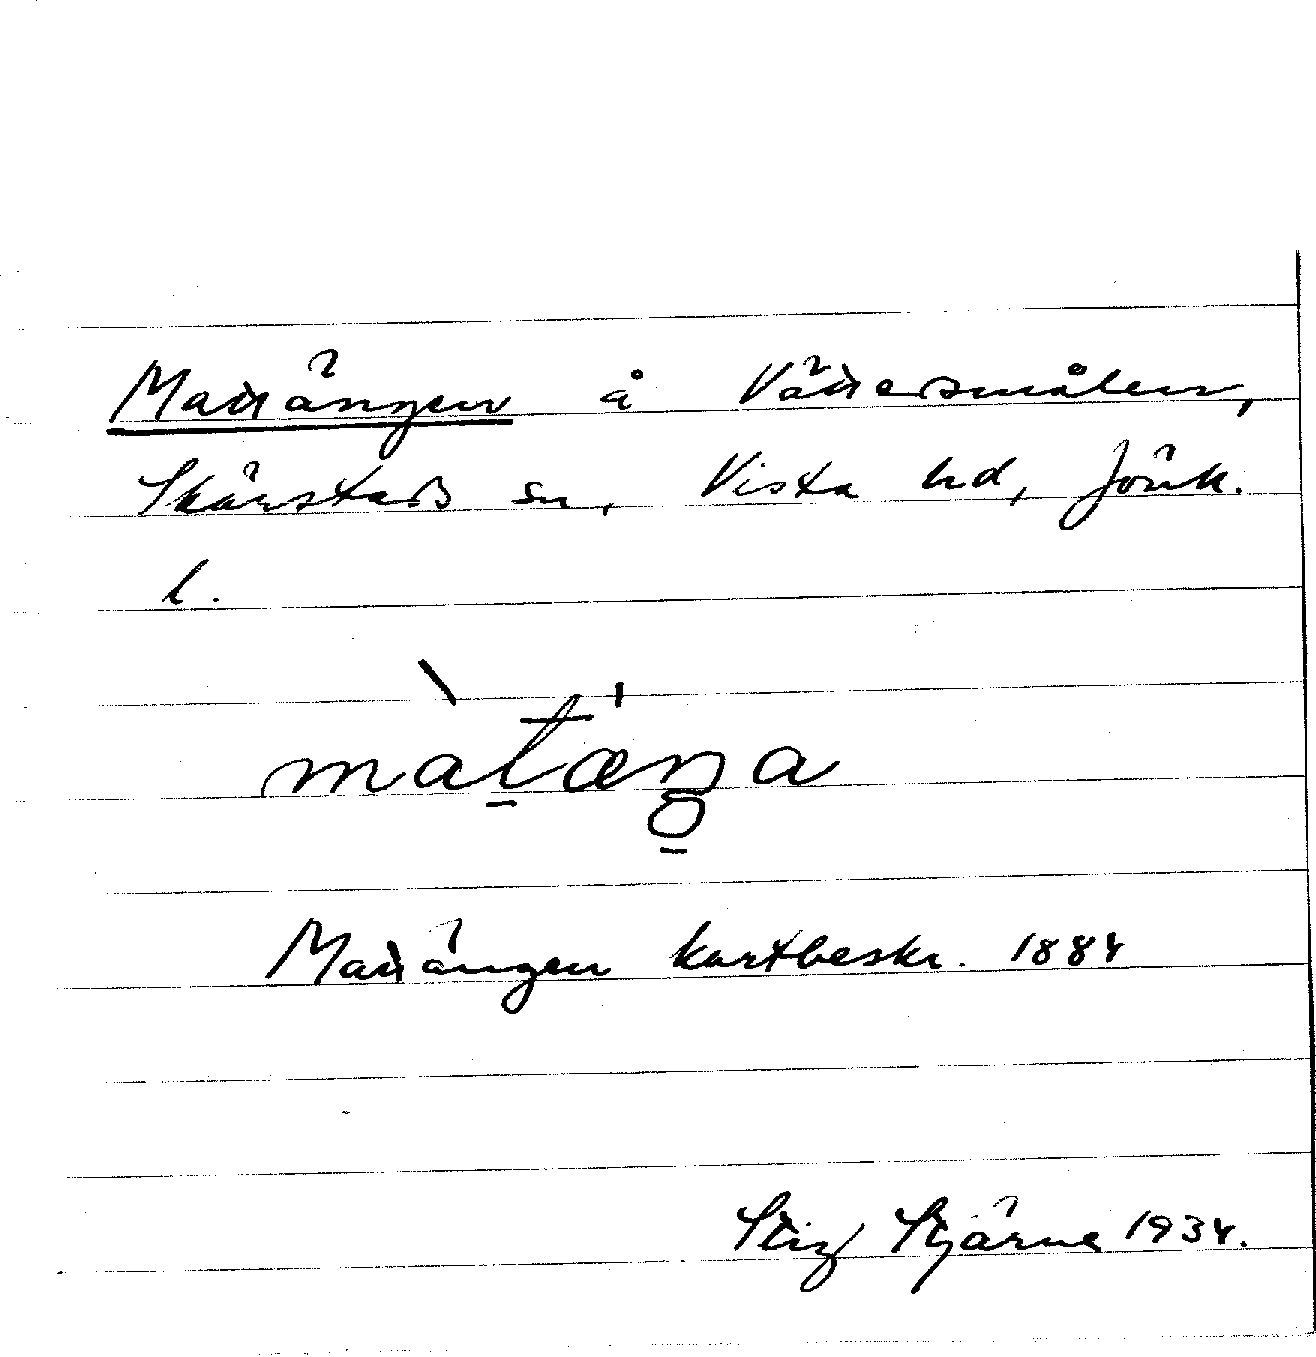 Mattängen å Vättersmålen,
Skärstads sn, Vista hd, Jönk.
l.
màtæŋa
Mattängen kartbeskr. 1884
Stig Stjärne 1934.